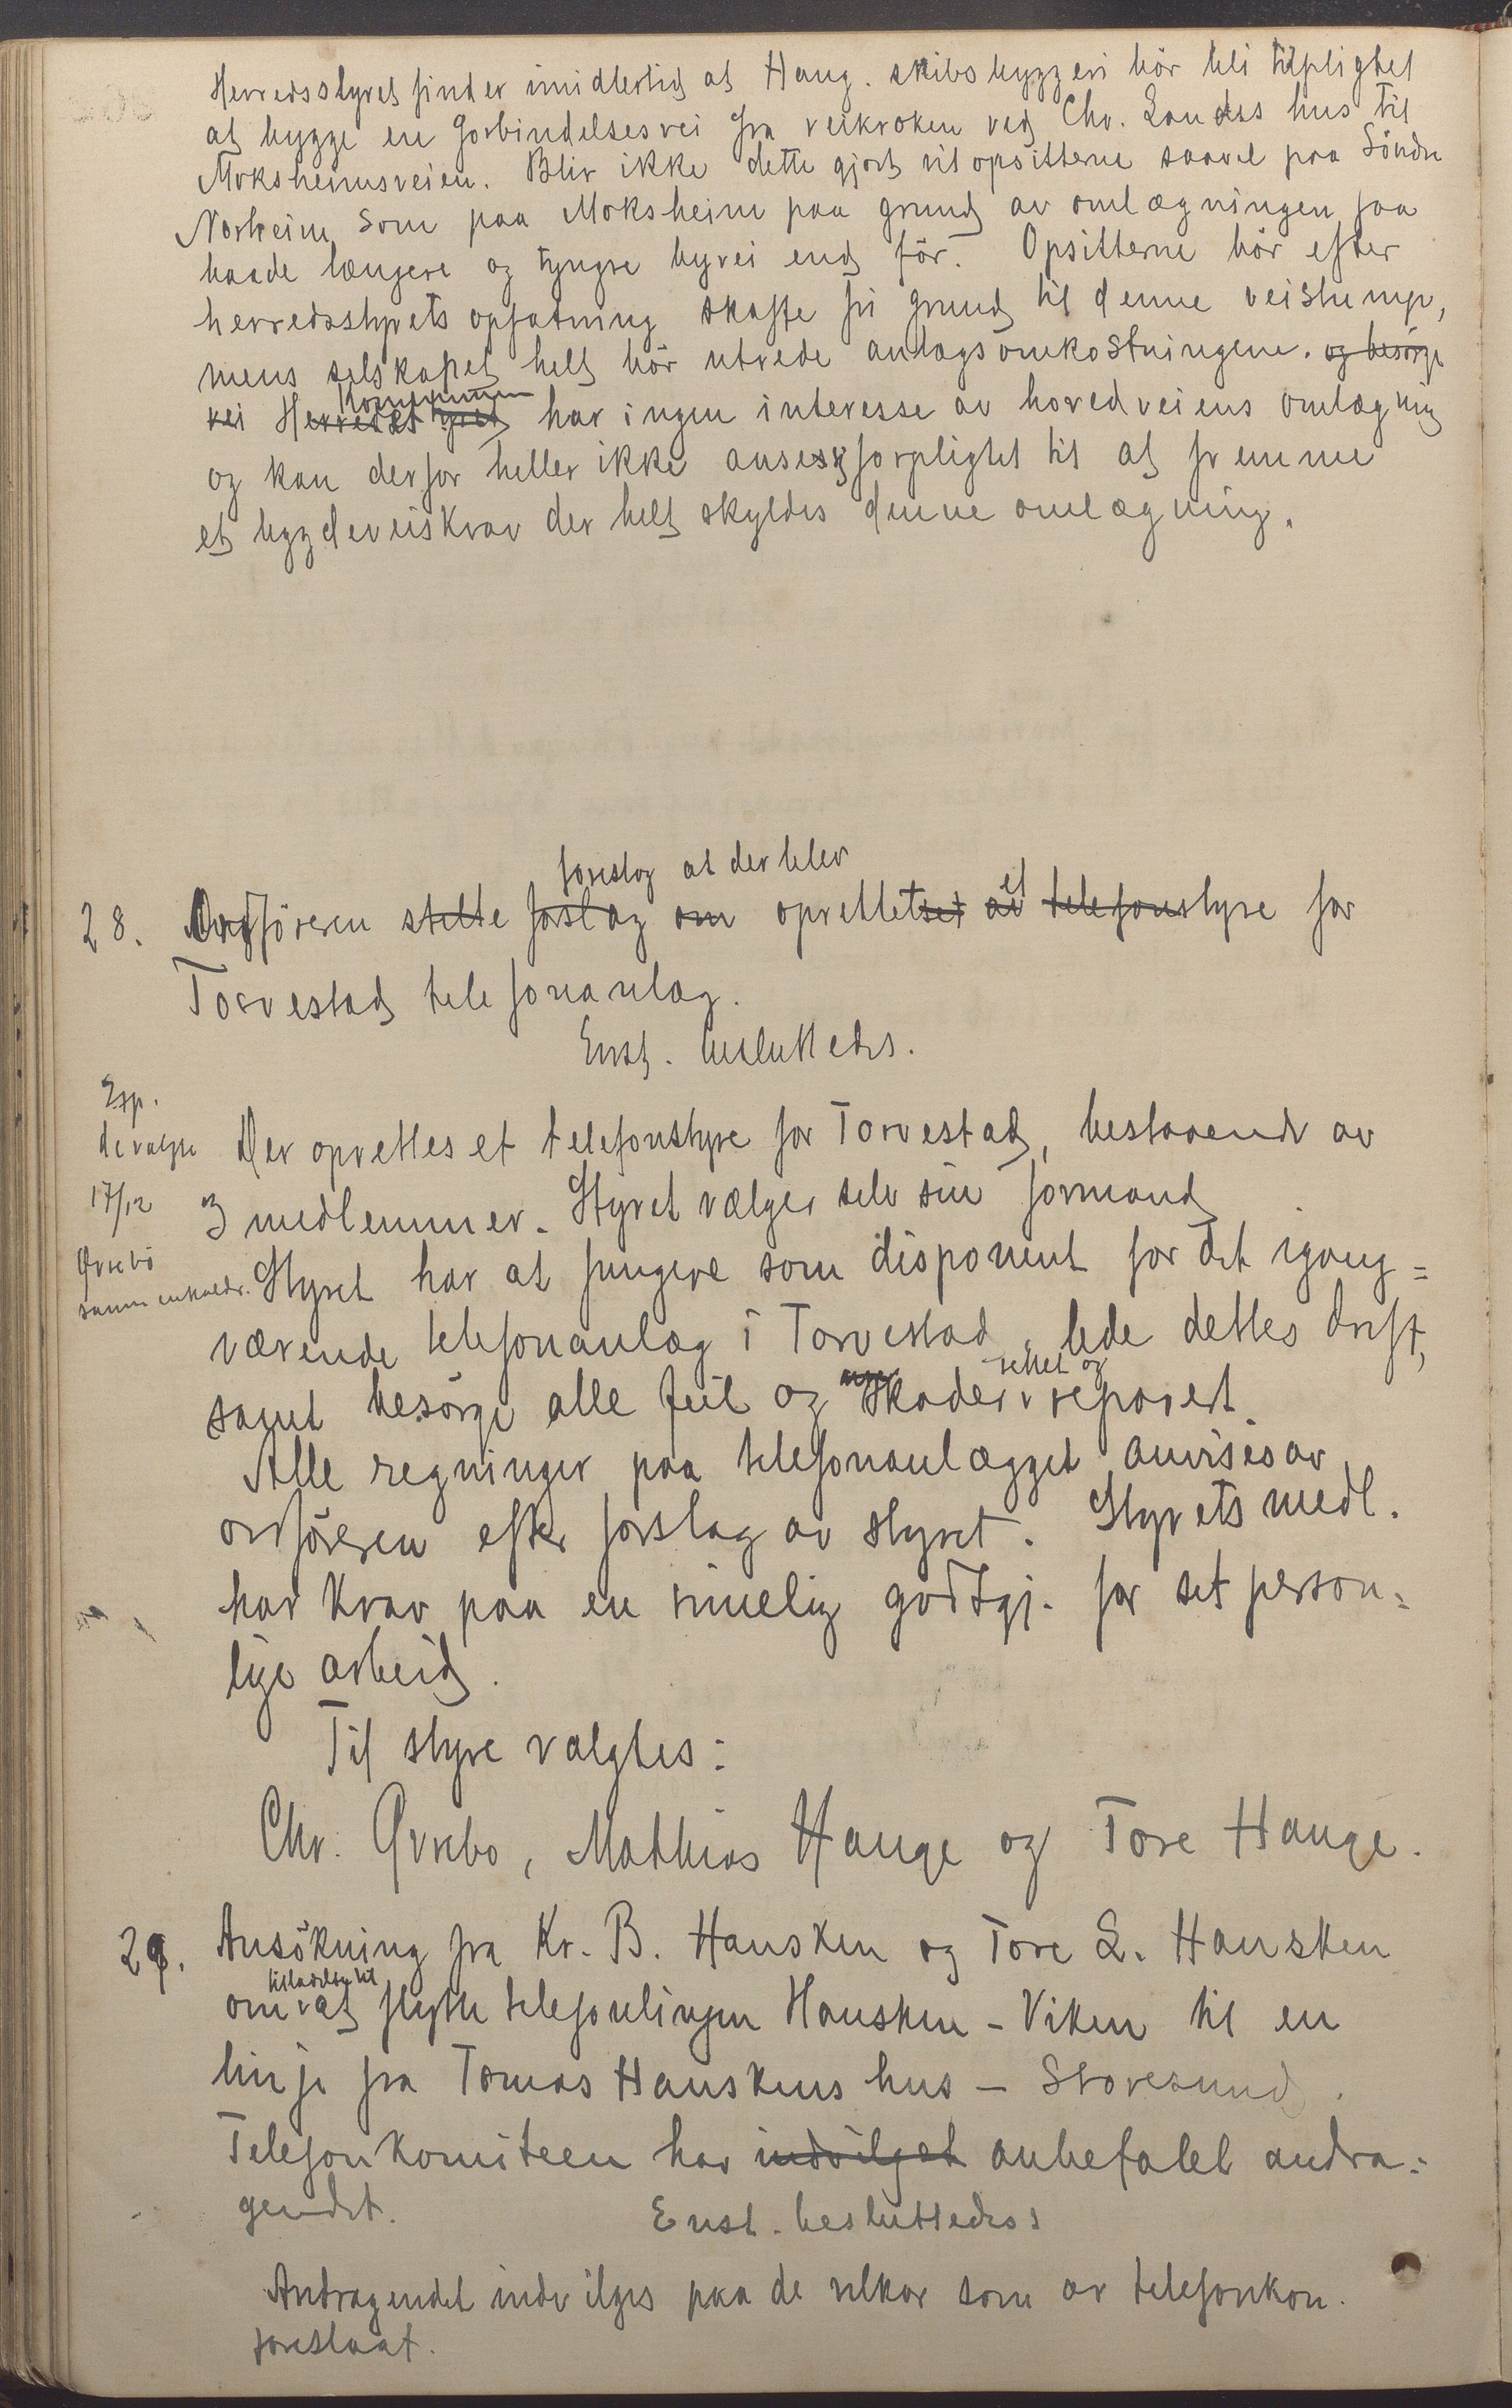 Herredsstyret finder imidlertid at Haug. skibsbyggeri bör bli tilpligtet
at bygge en forbindelsesvei fra veikroken ved Chr. Landaas hus til
Moksheimsveien. Blir ikke dette gjort vil opsitterne saavel paa Söndre
Norheim som paa Moksheim paa grund av omlægningen faa
baade længere og tyngre byvei end för. Opsitterne bör efter
herredsstyrets opfatning skaffe fri grund til denne veistump,
mens selskapet helt bör utrede anlægsomkostningene. og besörge
vei Herredsstyret Kommunen har ingen interesse av hovedveiens omlægning
og kan derfor heller ikke anses forpligtet til at fremme
et bygdeveiskrav der helt skyldes denne omlægning.
foreslog at der blev
28. Ordföreren stillte forslag om oprettet et telefonstyre for
Torvestad telefonanlæg.
Enst. besluttedes.
Esp.
de valgte
17/12
Øvrebö
sammenkalder.
Der oprettes et telefonstyre for Torvestad, bestaaende av
3 medlemmer. Styret vælger selv sin formand
Styret har at fungere som disponent for det igang=
værende telefonanlæg i Torvestad, lede dettes drift,
samt besörge alle feil og skader rettet og reparert.
Alle regninger paa telefonanlægget anvises av
ordföreren efter forslag av styret. Styrets medl.
har krav paa en rimelig godtgj. for det person=
lige arbeid.
Til styre valgtes:
Chr. Øvrebo, Mathias Hauge og Tore Hauge.
29. Ansökning fra Kr. B. Hausken og Tore L. Hausken
om tilladelse til at flytte telefonlinjen Hausken - Viken til en
linje fra Tomas Hauskens hus - Storesund.
Telefonkomiteen har indvilget anbefalet andra=
gendet. Enst. besluttedes:
Andragendet indvilges paa de vilkor som av telefonkom.
foreslaat.